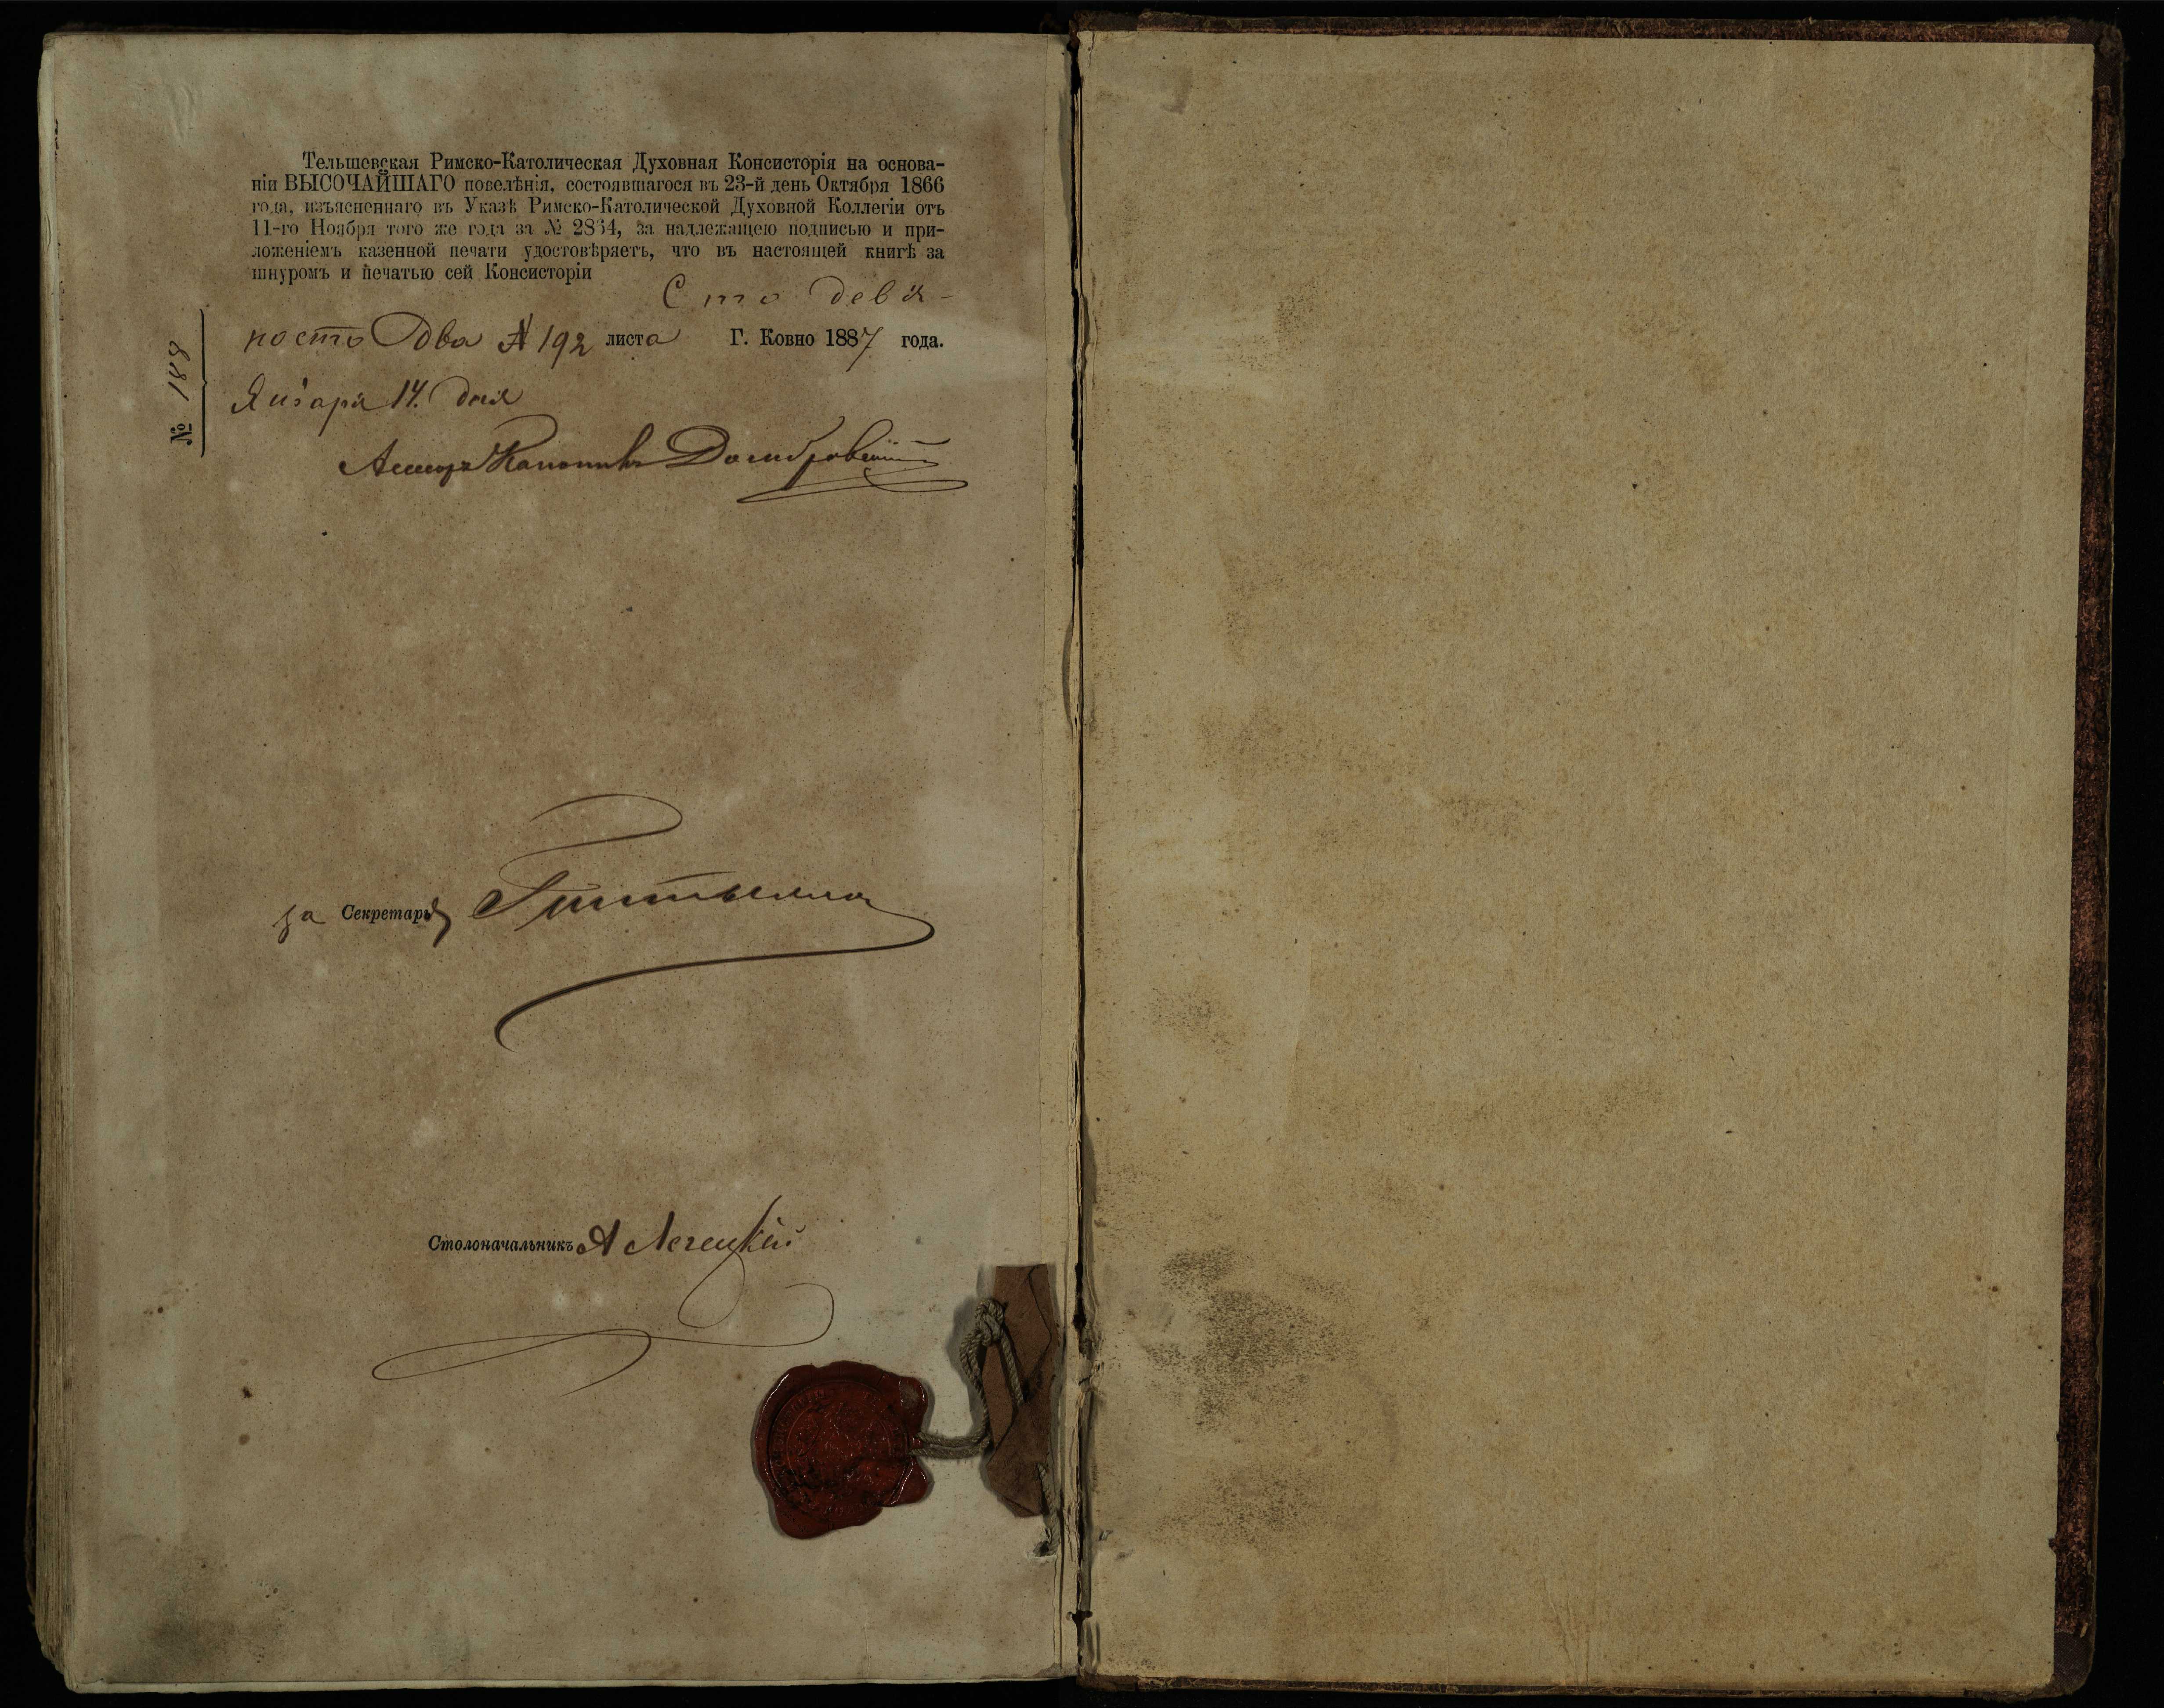 Тельшевская Римско-Католическая Духовная Консисторія на основа-
ніи ВЫСОЧАЙШАГО повелѣнія, состоявшагося въ 23-й день Октября 1866
года, изъясненнаго въ Указѣ Римско-Католической Духовной Коллегіи отъ
11-го Ноября того же года за № 2834, за надлежащею подписью и при-
ложеніемъ казенной печати удостовѣряетъ, что въ настоящей книгѣ за
шнуромъ и печатью сей Консисторіи
Сто девя-
носто два 192 листа Г. Ковно 1887 года.
№ 188
Января 14. дня
Каноникъ Домбровскій
за Секретаря
Столоначальникъ А